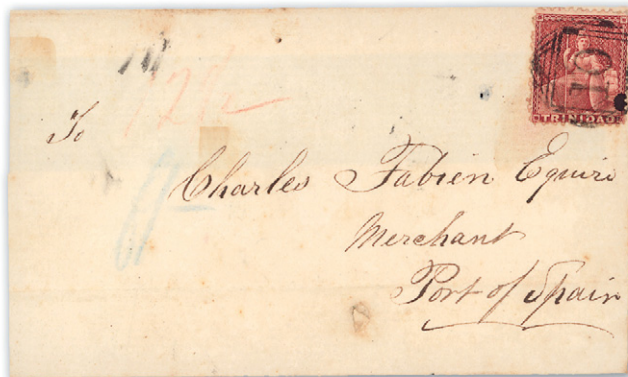 TRINIDAD
To
Charles Fabien Equire
Merchant
Port of Spain